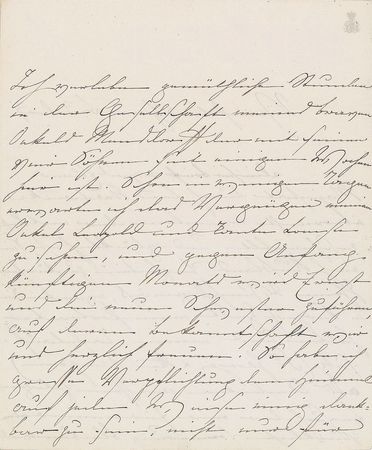 Ich verlebe gemüthliche Stunden
in der Gesellschaft meines braven
Onkels Mensdorff der mit seinen
vier Söhnen seit einigen Wochen
hier ist. Schon in wenigen Tagen
erwarte ich das Vergnügen meinen
Onkel Leopold und Tante Louise
zu sehen, und gegen Anfang
künftigen Monats wird Ernst
und die neue Schwester zuführen
auf deren Bekanntschaft wir
uns herzlich freuen. So habe ich
grosse Verpflichtung dem Himmel
auf jede Weise innig dank-
bar zu sein, nicht nur für